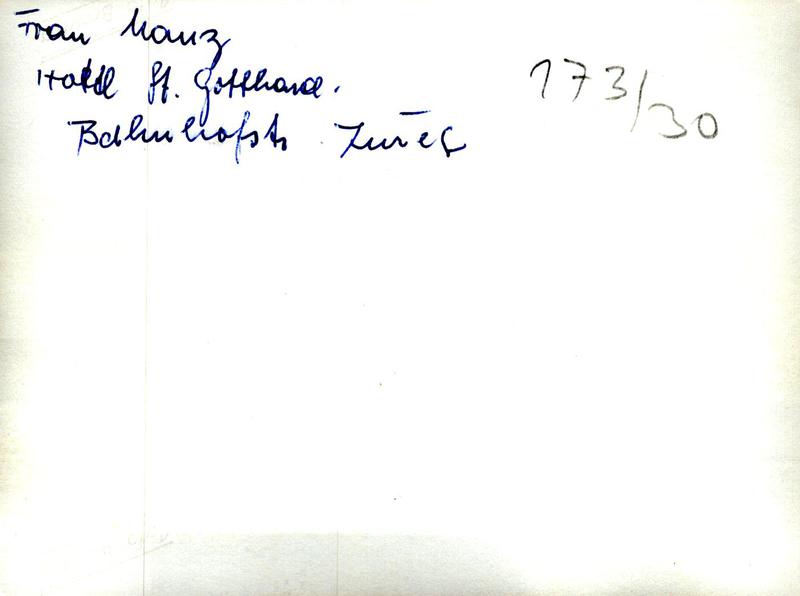 Frau Manz
Hotel St. Gotthard.
Bahnhofstr Zürich
173/30